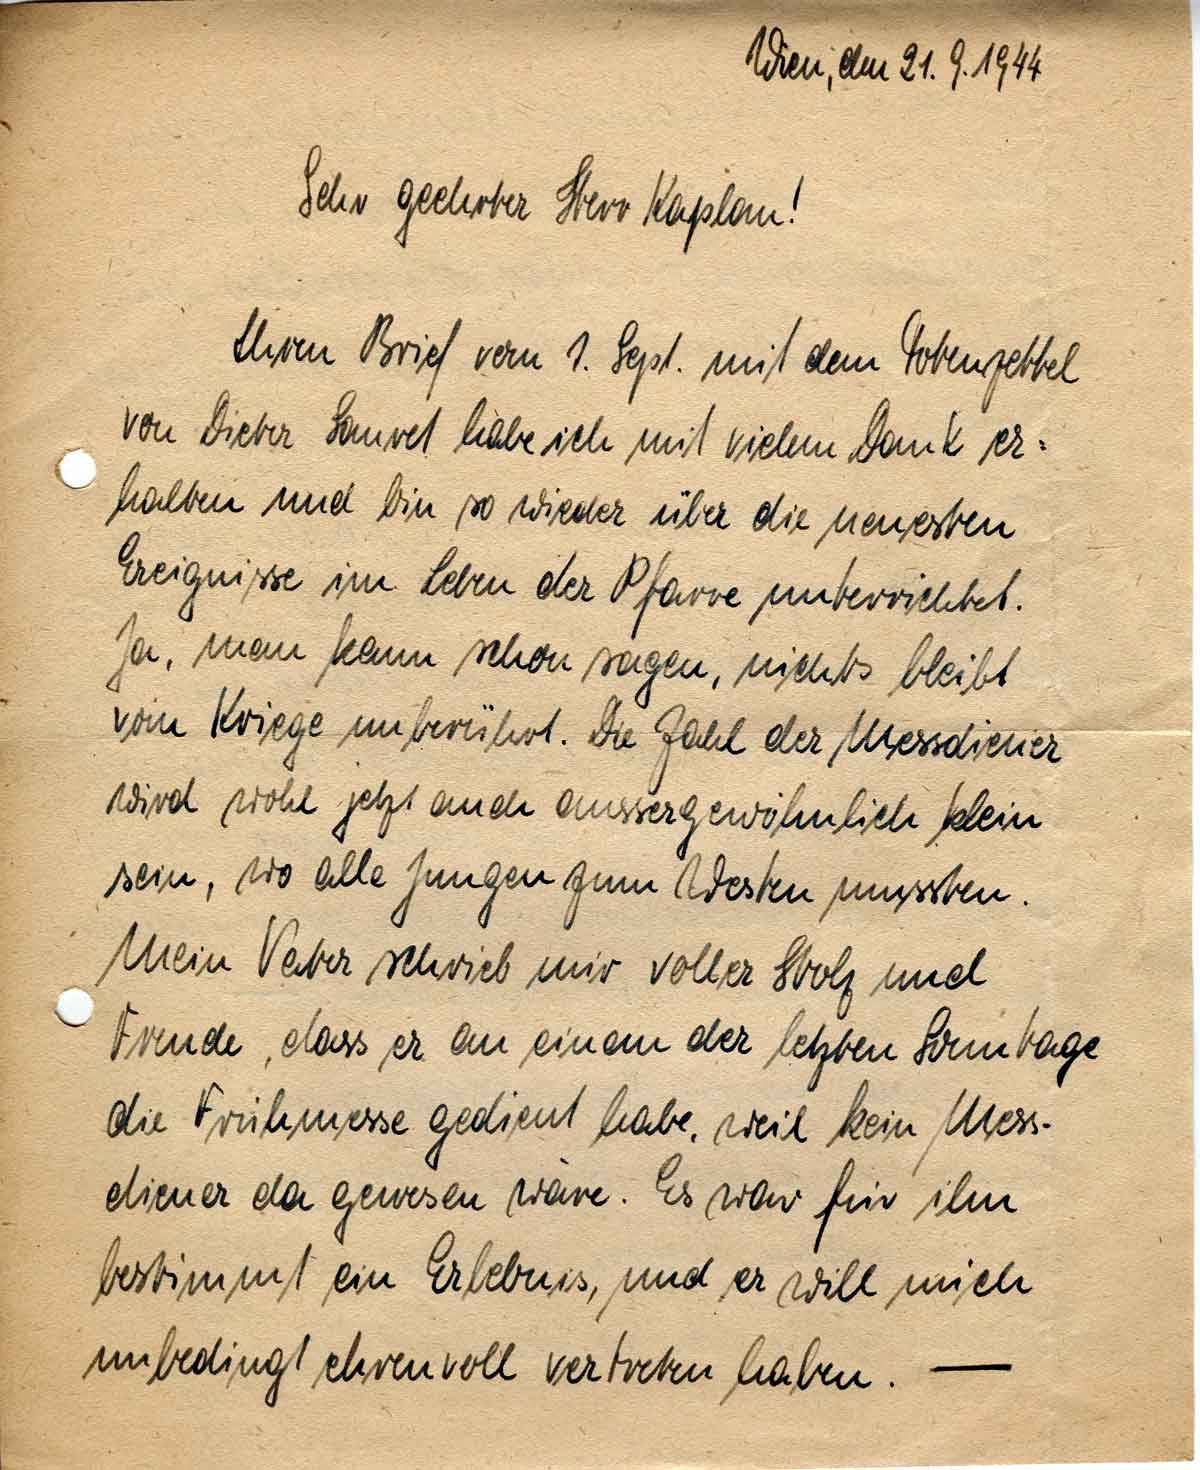 Wien, den 21. 9. 1944
Sehr geehrter Herr Kaplan!
Ihren Brief vom 1. Sept. mit dem Totenzettel
von Dieter Sauret habe ich mit vielem Dank er=
halten und bin so wieder über die neuesten
Ereignisse im Leben der Pfarre unterrichtet.
Ja, man kann schon sagen, nichts bleibt
vom Kriege unberührt. Die Zahl der Messdiener
wird wohl jetzt auch aussergewöhnlich klein
sein, wo alle Jungen zum Westen mussten.
Mein Vater schrieb mir voller Stolz und
Freude, dass er an einem der letzten Sonntage
die Frühmesse gedient habe, weil kein Mess-
diener da gewesen wäre. Es war für ihn
bestimmt ein Erlebnis, und er will mich
unbedingt ehrenvoll vertreten haben. —